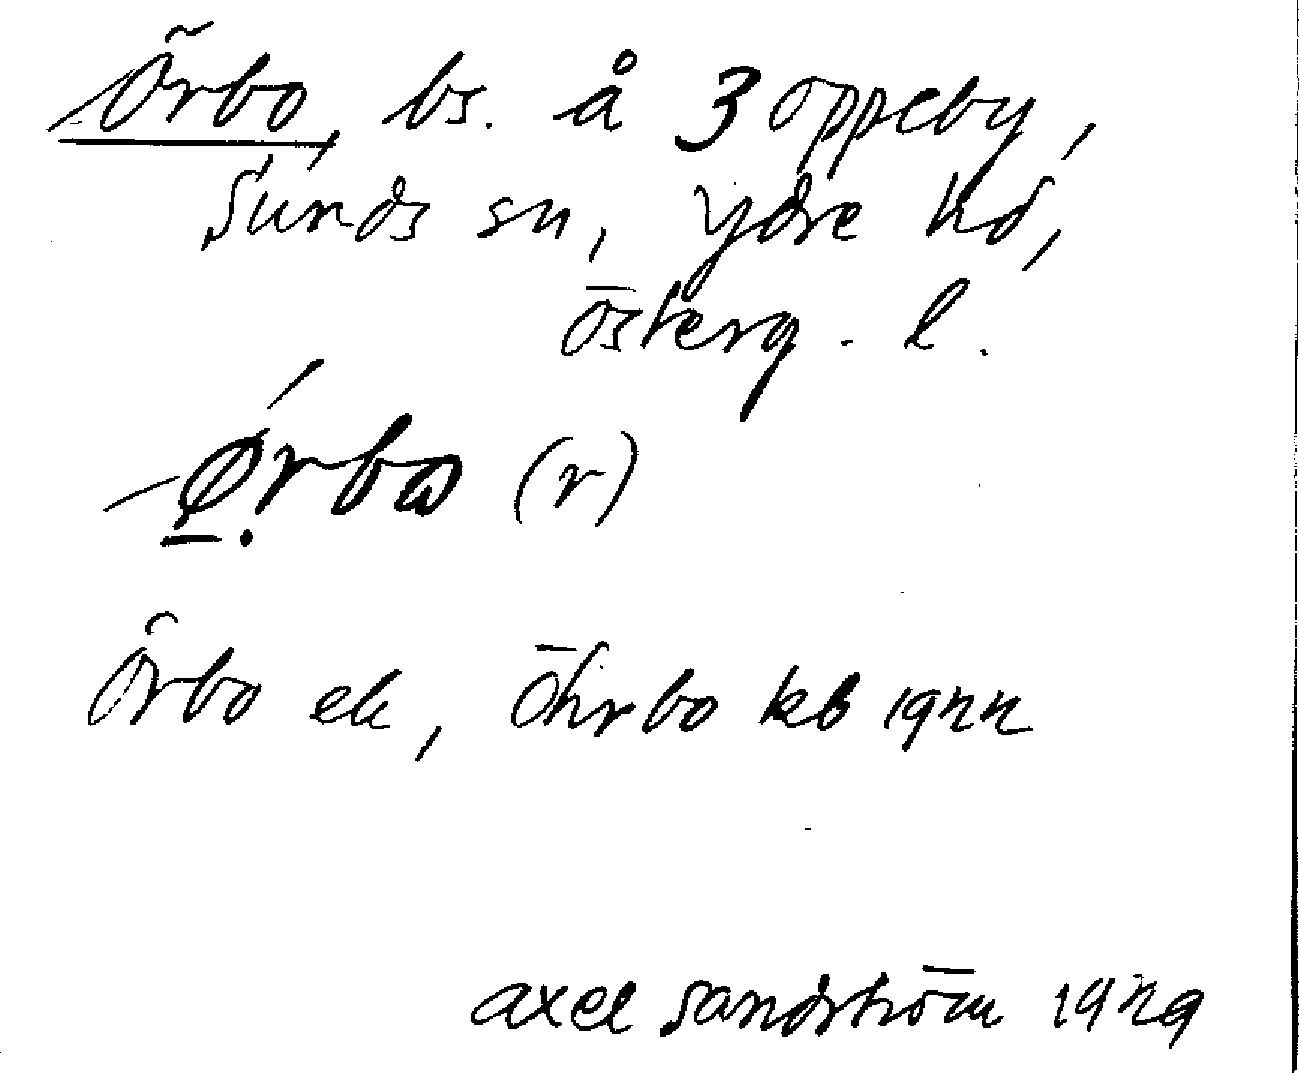 Örbo, bs. å 3 Oppeby,
Sunds sn, Ydre hd,
Österg. l.
Örbo ek, Öhrbo kb 1922
Axel Sandström 1929